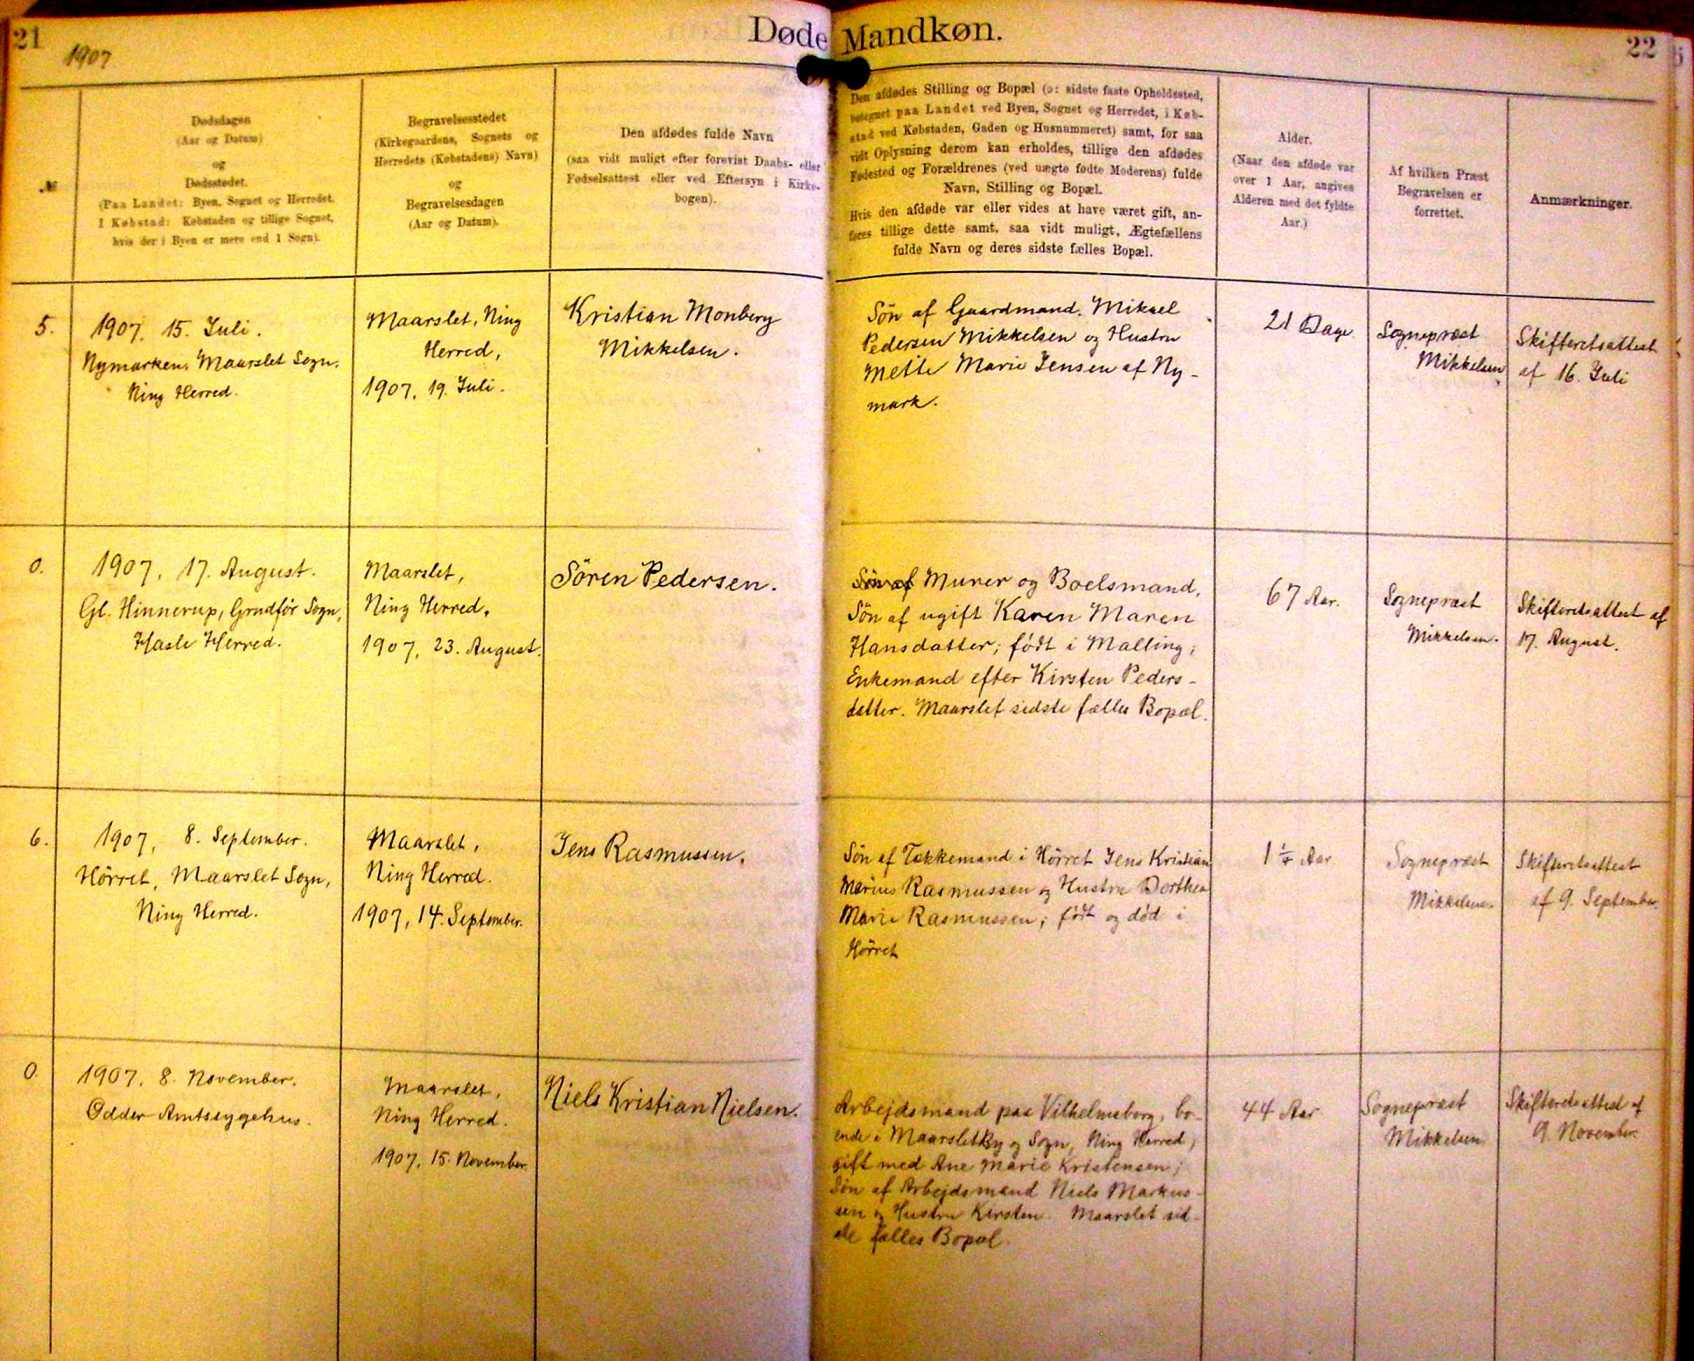 21
1907
Døde Mandkøn.
22
№
Dødsdagen
(Aar og Datum)
og
Dødsstedet.
(Paa Landet: Byen, Sognet og Herredet.
I Købstad: Købstaden og tillige Sognet,
hvis der i Byen er mere end 1 Sogn).
Begravelsesstedet
(Kirkegaardens, Sognets og
Herredets (Købstadens) Navn)
og
Begravelsesdagen
(Aar og Datum).
Den afdødes fulde Navn
(saa vidt muligt efter forevist Daabs- eller
Fødselsattest eller ved Eftersyn i Kirke-
bogen).
Den afdødes Stilling og Bopæl (ɔ: sidste faste Opholdssted,
betegnet paa Landet ved Byen, Sognet og Herredet, i Køb-
stad ved Købstaden, Gaden og Husnummeret) samt, for saa
vidt Oplysning derom kan erholdes, tillige den afdødes
Fødested og Forældrenes (ved uægte fødte Moderens) fulde
Navn, Stilling og Bopæl.
Hvis den afdøde var eller vides at have været gift, an-
føres tillige dette samt, saa vidt muligt, Ægtefællens
fulde Navn og deres sidste fælles Bopæl.
Alder.
(Naar den afdøde var
over 1 Aar, angives
Alderen med det fyldte
Aar.)
Af hvilken Præst
Begravelsen er
forrettet.
Anmærkninger.
5.
1907. 15. Juli.
Nymarken, Maarslet Sogn.
Ning Herred.
Maarslet, Ning
Herred,
1907, 19. Juli.
Kristian Monberg
Mikkelsen.
Søn af Gaardmand. Mikael
Pedersen Mikkelsen og Hustru
Mette Marie Jensen af Ny-
mark.
21 Dage
Sognepræst
Mikkelsen
Skifteretsattest
af 16. Juli
0.
1907, 17. August.
Gl. Hinnerup, Grundfør Sogn,
Hasle Herred.
Maarslet,
Ning Herred.
1907, 23. August.
Sören Pedersen.
Søn af Murer og Boelsmand,
Søn af ugift Karen Maren
Hansdatter; født i Malling;
Enkemand efter Kirsten Peders-
datter. Maarslet sidste fælles Bopæl.
67 Aar.
Sognepræst
Mikkelsen.
Skifteretsattest af
17. August.
6.
1907, 8. September.
Hørret, Maarslet Sogn,
Ning Herred.
Maarslet,
Ning Herred.
1907, 14. September.
Jens Rasmussen.
Søn af Tækkemand i Hørret Jens Kristian
Marius Rasmussen og Hustru Dorthea
Marie Rasmussen; født og død i
Hørret
1 1/4 Aar
Sognepræst
Mikkelsen.
Skifteretsattest
af 9. September.
0.
1907. 8. November.
Odder Amtssygehus.
Maarslet,
Ning Herred.
1907, 15. November.
Niels Kristian Nielsen.
Arbejdsmand paa Vilhelmsborg, bo-
ende i Maarslet By og Sogn, Ning Herred;
gift med Ane Marie Kristensen;
Søn af Arbejdsmand Niels Markus-
sen og Hustru Kirsten. Maarslet sid-
ste fælles Bopæl.
44 Aar
Sognepræst
Mikkelsen
Skifteretsattest af
9. November.